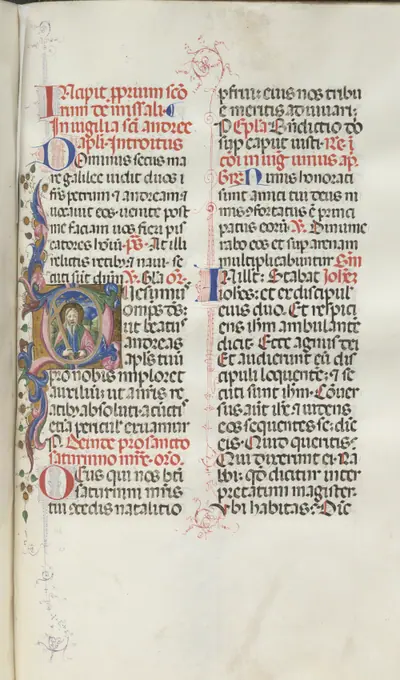 Incipit pprium scõ
rum de missali.
In vigilia sci andree
apli. Introitus
Dominus secus ma
re galilee vidit duos f
rẽs petrum ⁊ andream ⁊
vocavit eos venite post
me faciam vos fieri pi
catores hoĩm. ps̃. At illi
relictis retib; ⁊ navi se
cuti sũt dñm. ℣. Gl̃a or̃.
Quesumus
omps ds̃.
ut beatus
andreas
apl̃s tuus
pro nobis imploret
auxiliuz: ut a nr̃is re
atib; absoluti a cunctis
etiã periculis eruamur
p. Deinde pro sancto
saturnino mr̃e. oro.
Deus qui nos bt̃i
saturnini mr̃is
tui ↄcedis natalitio
pfrui: eius nos tribu
e meritis adiuvari.
p. Epl̃a. Bñdictio dñi
sup caput iusti. Re i
coĩ in vig̃ unius ap.
Gr̃. Nimis honorati
sunt amici tui deus ni
mis ↄfortatus ẽ princi
patus eorũ. ℣. Dinume
rabo eos et sup arenam
multiplicabuntur.
In illo t. Stabat Johẽz
iohes: et ex discipul̃
eius duo. Et respici
ens ihm ambulante
dicit. Ecce agnus dei
Et audierunt eũ di
scipuli loquente: ⁊ se
cuti sunt ihm. Cõver
sus aut ihs: ⁊ videns
eos sequentes se: dic̃
eis. Quid queritis:
Qui dixerunt ei. Ra
bi: qd dicitur inter
pretatum magister.
Ubi habitas: Dic̃